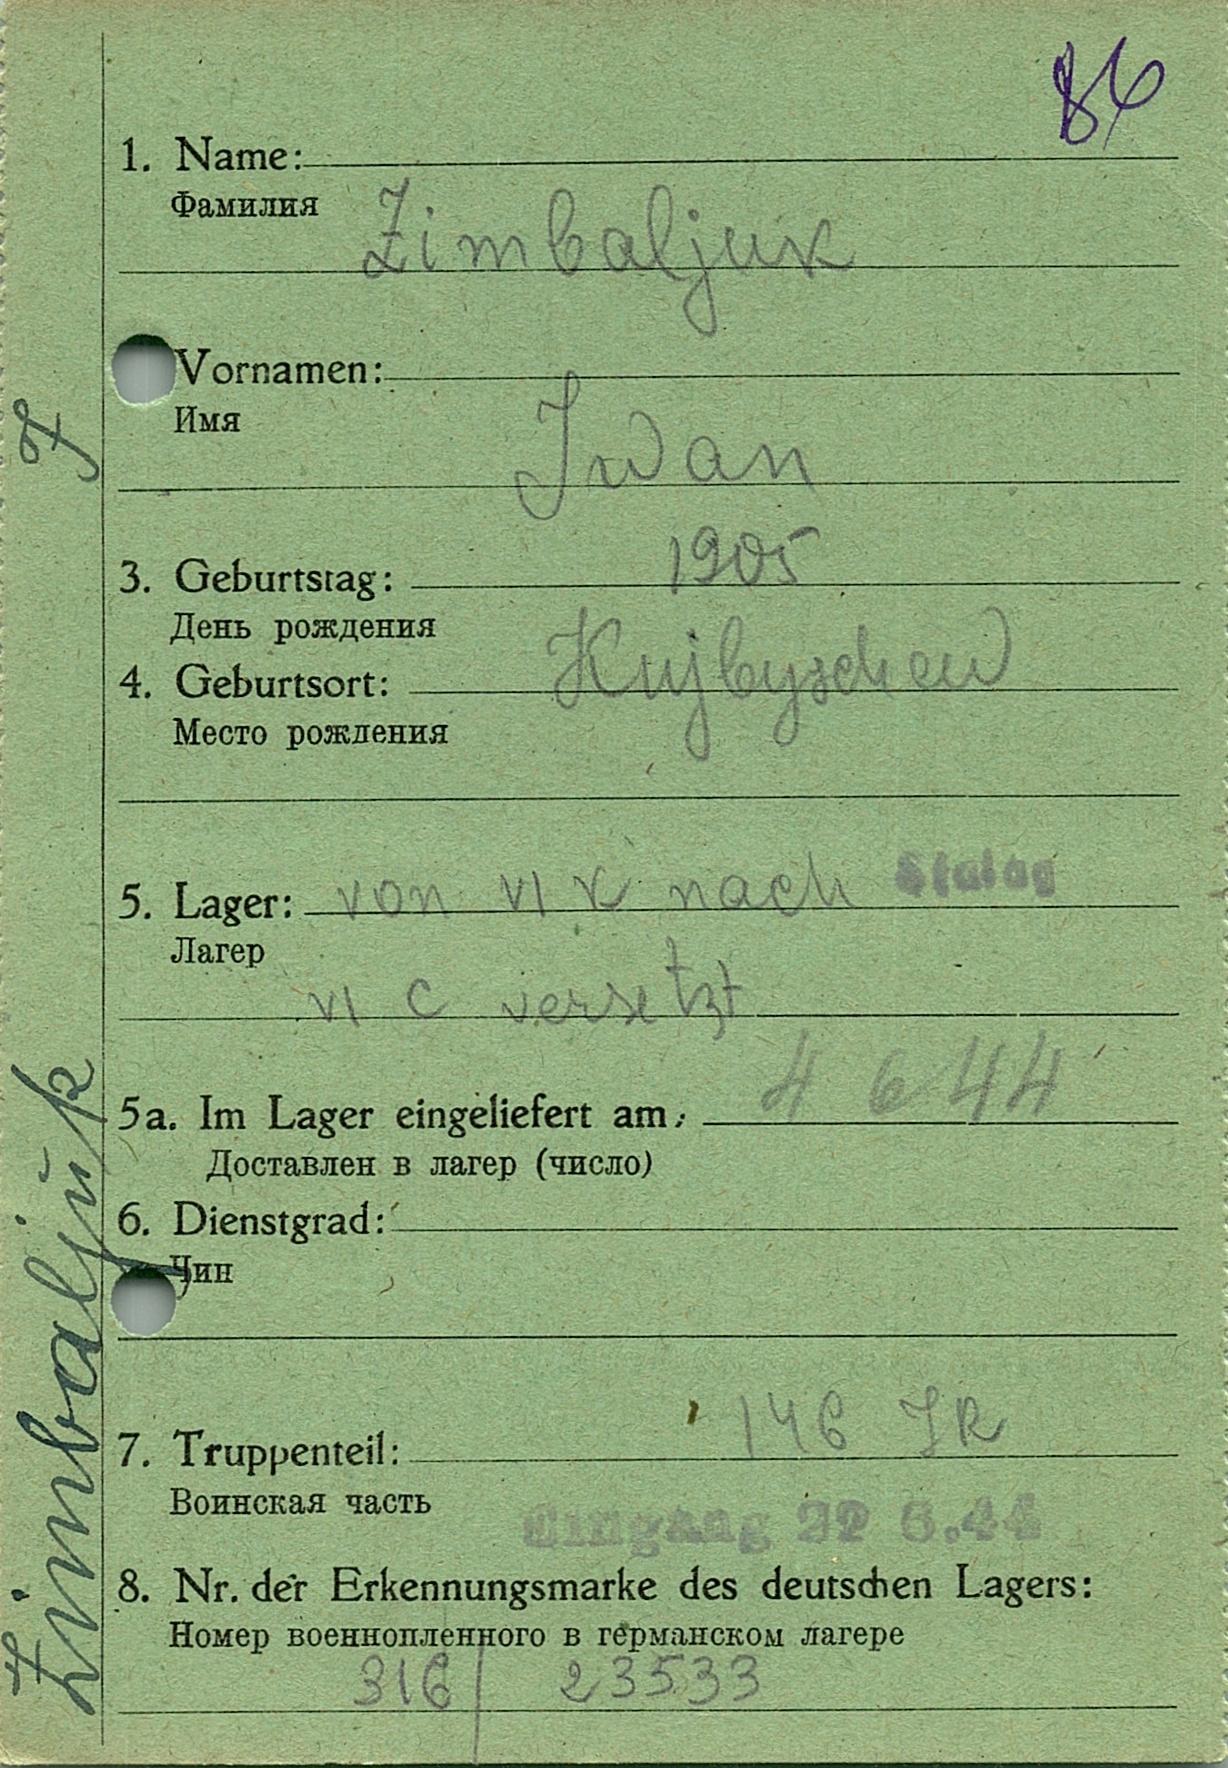 86
1. Name:
Фамилия
Zimbaljuk
Vornamen:
Имя
Iwan
1905
3. Geburtstag:
День рождения
4. Geburtsort: Kujbyschew
Место рождения
5. Lager: von VI K nach Stalag
Лагер
VI C versetzt
5a. Im Lager eingeliefert am: 4 6 44
Доставлен в лагер (число)
6. Dienstgrad:
Чин
7. Truppenteil: 146 IR
Воинская часть
Eingang 22 6.44
8. Nr. der Erkennungsmarke des deutschen Lagers:
Номер военнопленного в германском лагере
316/ 23533
Zimbaljuk J